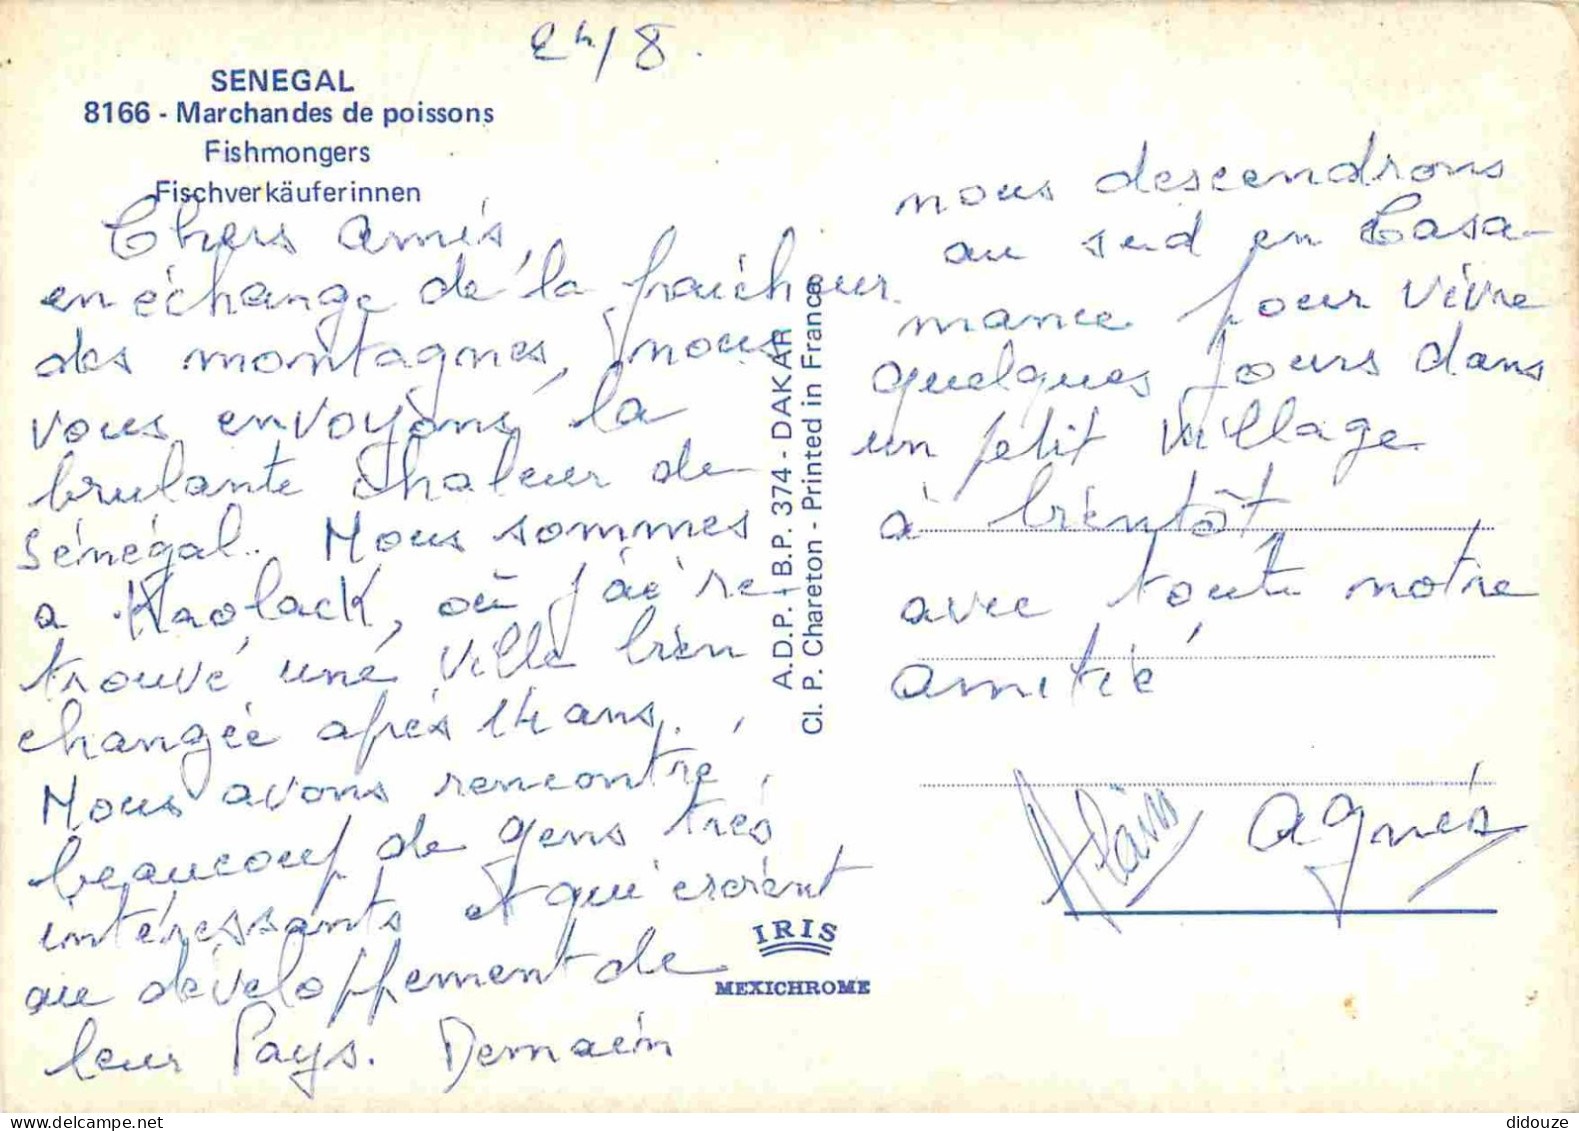 24/8.
SENEGAL
8166 - Marchandes de poissons
Fishmongers
Fischverkäuferinnen
Chers Amis,
en échange de la fraîcheur
des montagnes, nous
vous envoyons la
brulante chaleur de
Sénégal. Nous sommes
a Kaolack, où j'ai re
trouvé une ville bien
changée après 14 ans.
Nous avons rencontré
beaucoup de gens très
intéressants et qui croient
au développement de
leur Pays. Demain
nous descendrons
au sud en Casa-
mance pour vivre
quelques jours dans
un petit village
à bientôt
avec toute notre
amitié
Alain Agnès
A.D.P. - B.P. 374 - DAKAR
Cl. P. Chareton - Printed in France
IRIS
MEXICHROME
delcampe.net
didouze